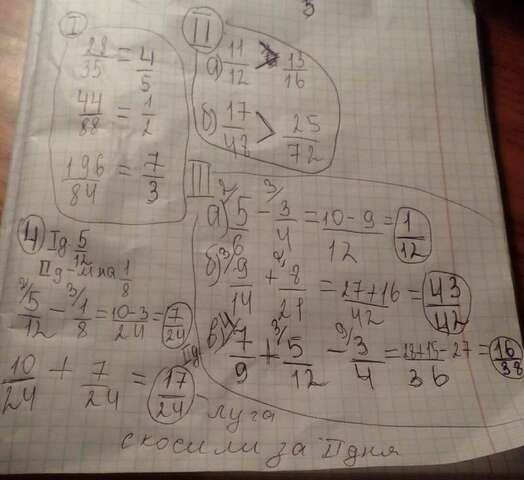 I
28/35 = 4/5
44/88 = 1/2
196/84 = 7/3
II
а) 11/12 > 15/16
б) 17/48 > 25/72
III
а) 5/6 - 3/4 = 10-9/12 = 1/12
б) 9/14 + 8/21 = 27+16/42 = 43/42
в) 7/9 + 5/12 - 3/4 = 28+15-27/36 = 16/38
4 Iд 5/12
IIд - м на 1/8
5/12 - 1/8 = 10-3/24 = 7/24 IIд
10/24 + 7/24 = 17/24 - луга
скосили за II дня